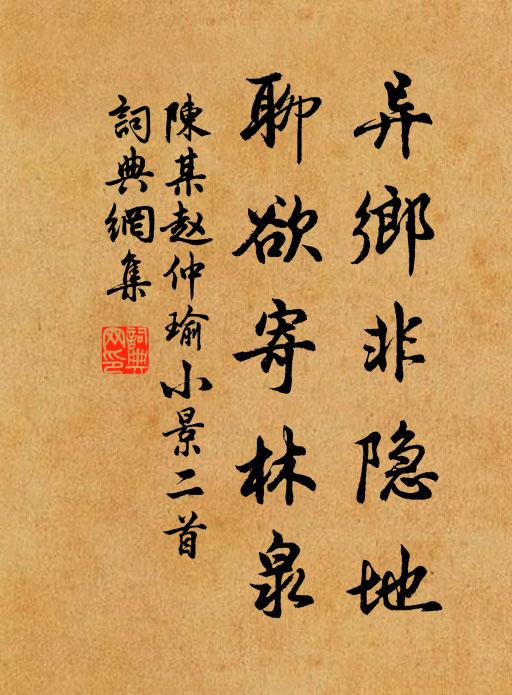 异鄉非隐地
聊欲寄林泉
陳某赵仲瑜小景二首
詞典網集
詞典網印